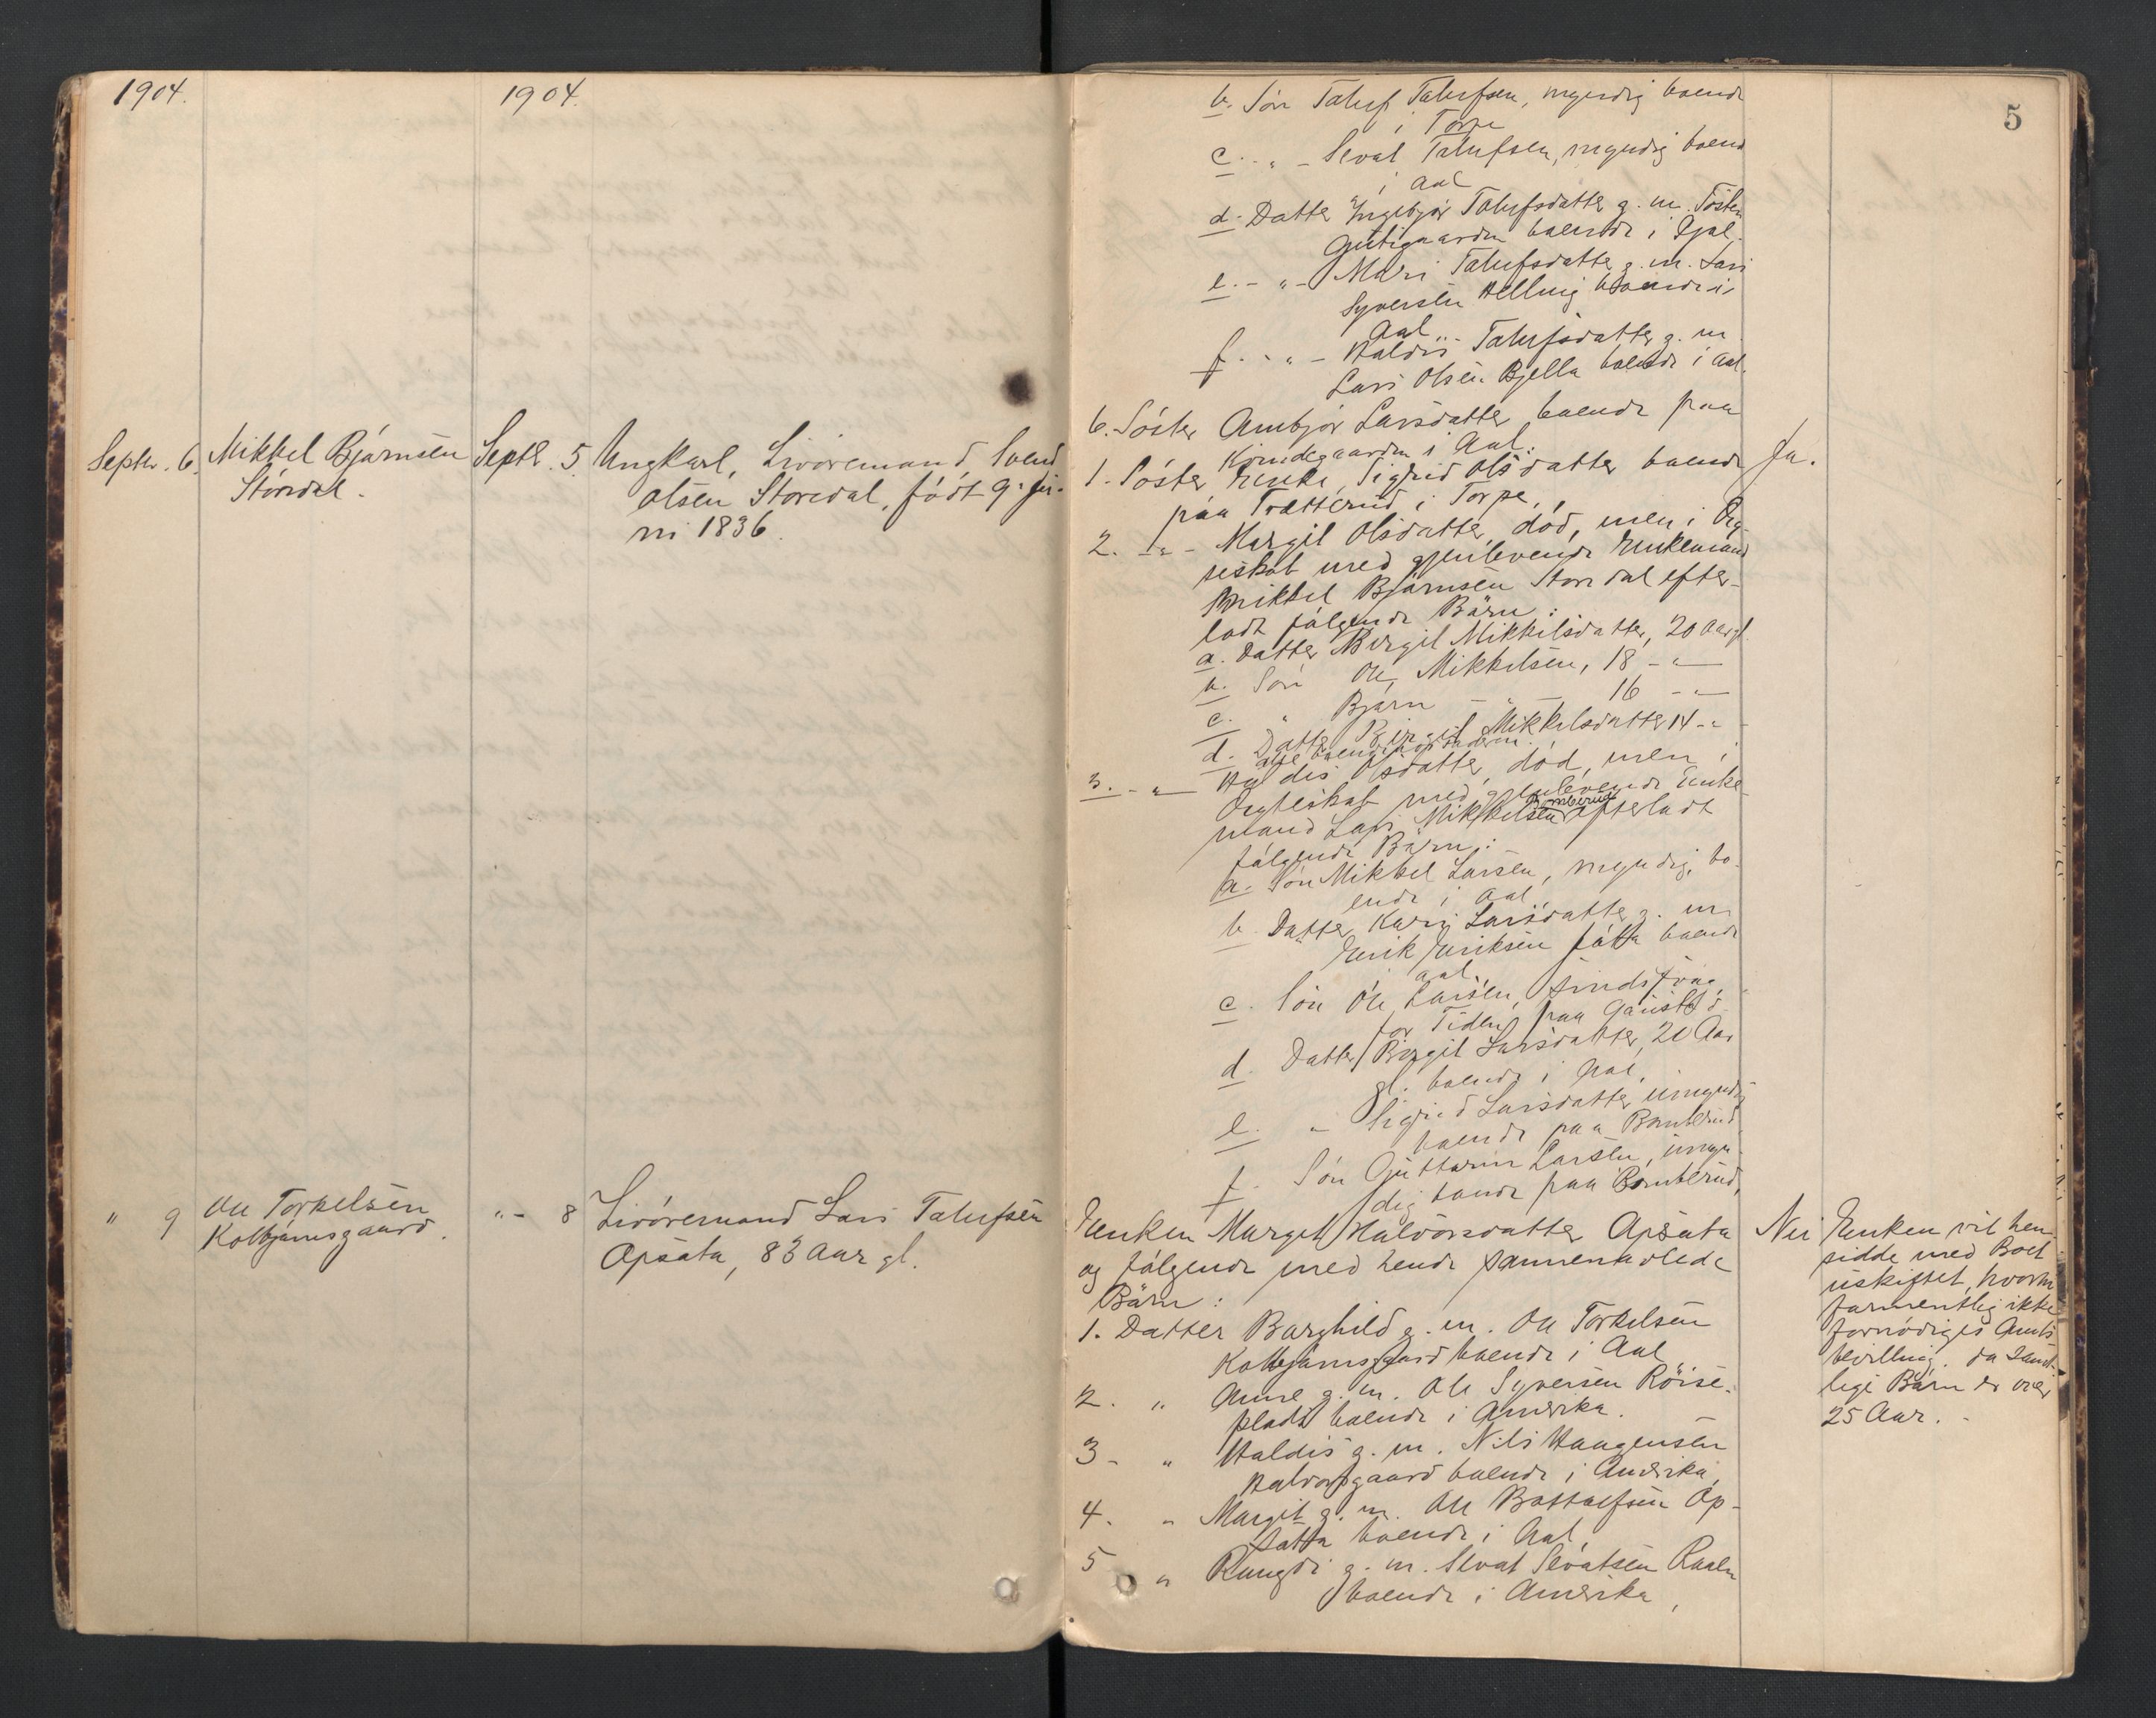 1904.
1904.
Septr. 6. Mikkel Bjørnsen
Storedal.
Septb. 5. Ungkarl, Livøremand, Svend
Olsen Storedal, født 9. ju-
ni 1836.
" 9 Ole Torkelsen
Kolbjørnsgaard.
"- 8 Livøremand Lars Tolufsen
Opsata, 83 Aar gl.
5
b. Søn Toluf Tolufsen, myndig boende
i Torpe
c. " - Sevat Tolufsen, myndig boend
i Aal
d. Datter Ingebjør Tolufsdatter g. m. Tosten
boende i Gol.
e. - " - Mari Tolufsdatter g. m. Lars
Syversen Helling boende i
Aal
f. - " - Haldis Tolufsdatter g. m.
Lars Olsen Bjella boende i Aal.
6. Søster Ambjør Larsdatter boende paa
i Aal.
1. Søster Enke, Sigrid Olsdatter boende
paa Trætterud i Torpe,
Ja.
2. - " - Margit Olsdatter, død, men i Æg-
teskab med gjenlevende Enkemand
Mikkel Bjørnsen Storedal efter-
ladt følgende Børn:
a. Datter Birgit Mikkelsdatter, 20 Aar gl.
b. Søn Ole Mikkelsen, 18 - " -
c. " Bjørn - " - 16 - " -
d. Datter Birgit Mikkelsdatter 14 - "
alle boende hos Faderen.
3. - " - Haldis Olsdatter, død, men i
Ægteskab med gjenlevende Enke-
mand Lars Mikkelsen Bomberud efterladt
følgende Børn:
a. Søn Mikkel Larsen, myndig, bo-
ende i Aal.
b. Datter Kari Larsdatter g. m.
Eirik Eiriksen boende
i Aal.
c. Søn Ole Larsen, sindssvag,
for Tiden paa Gaustad
d. Datter Birgit Larsdatter, 20 Aar
gl. boende i Aal.
e. " Sigrid Larsdatter umyndig
boende paa Bomberud
f. Søn Guttorm Larsen, umyn-
dig boende paa Bomberud.
Enken Margit Halvorsdatter Opsata
og følgende med hende sammenavlede
Børn:
1. Datter Barghild g. m. Ole Torkelsen
Kolbjørnsgaard boende i Aal
2. " Anne g. m. Ole Syversen Röise-
plads boende i Amerika.
3 - " Haldis g. m. Nils Haagensen
Halvorsgaard boende i Amerika,
4. " Margit g. m. Ole Bottolfsen Op-
satta boende i Aal,
5 " Rangdi g. m. Sevat Sevatsen
boende i Amerika,
Nei Enken vil hen-
sidde med Boet
uskiftet, hvortil
formentlig ikke
fornødiges Amts-
bevilling, da samt-
lige Børn er over
25 Aar.